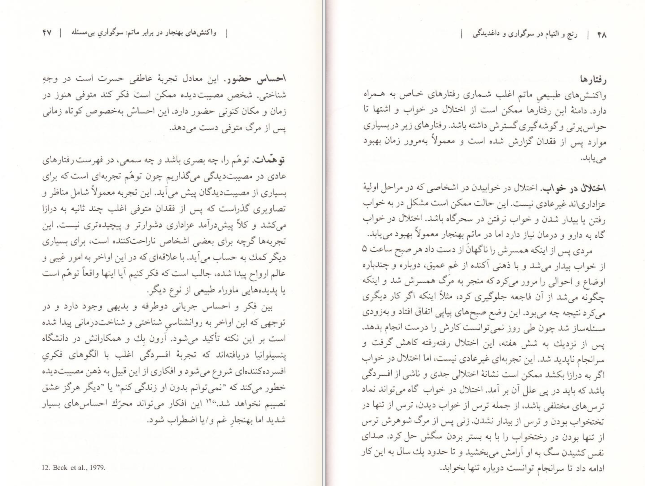 واکنش‌های بهنجار در برابر ماتم: سوگواریِ بی‌مسئله | ۴۷
احساس حضور. این معادل تجربهٔ عاطفی حسرت است در وجهِ
شناختی. شخص مصیبت‌دیده ممکن است فکر کند متوفی هنوز در
زمان و مکان کنونی حضور دارد. این احساس به‌خصوص کوتاه زمانی
پس از مرگ متوفی دست می‌دهد.
توهّمات. توهّم را، چه بصری باشد و چه سمعی، در فهرست رفتارهای
عادی در مصیبت‌دیدگی می‌گذاریم چون توهّم تجربه‌ای است که برای
بسیاری از مصیبت‌دیدگان پیش می‌آید. این تجربه معمولاً شامل مناظر و
تصاویری گذراست که پس از فقدان متوفی اغلب چند ثانیه به درازا
می‌کشد و کلاً پیش‌درآمد عزاداری دشوارتر و پیچیده‌تری نیست. این
تجربه‌ها گرچه برای بعضی اشخاص ناراحت‌کننده است، برای بسیاری
دیگر کمک به حساب می‌آید. با علاقه‌ای که در این اواخر به امور غیبی و
عالم ارواح پیدا شده، جالب است که فکر کنیم آیا اینها واقعاً توهّم است
یا پدیده‌هایی ماوراء طبیعی از نوع دیگر.
بین فکر و احساس جریانی دوطرفه و بدیهی وجود دارد و در
توجهی که این اواخر به روانشناسی شناختی و شناخت‌درمانی پیدا شده
است بر این نکته تأکید می‌شود. آرون بِک و همکارانش در دانشگاه
پنسیلوانیا دریافته‌اند که تجربهٔ افسردگی اغلب با الگوهای فکریِ
افسرده‌کننده‌ای شروع می‌شود و افکاری از این قبیل به ذهن مصیبت‌دیده
خطور می‌کند که "نمی‌توانم بدون او زندگی کنم" یا "دیگر هرگز عشق
نصیبم نخواهد شد."¹² این افکار می‌تواند محرّک احساس‌های بسیار
شدید اما بهنجارِ غم و/یا اضطراب شود.
12. Beck et al., 1979.
۴۸ | رنج و التیام در سوگواری و داغدیدگی
رفتارها
واکنش‌های طبیعیِ ماتم اغلب شماری رفتارهای خاص به همراه
دارد. دامنهٔ این رفتارها ممکن است از اختلال در خواب و اشتها تا
حواس‌پرتی و گوشه‌گیری گسترش داشته باشد. رفتارهای زیر در بسیاری
موارد پس از فقدان گزارش شده است و معمولاً به‌مرور زمان بهبود
می‌یابد.
اختلال در خواب. اختلال در خوابیدن در اشخاصی که در مراحل اولیهٔ
عزاداری‌اند غیرعادی نیست. این حالت ممکن است مشکل در به خواب
رفتن یا بیدار شدن و خواب نرفتن در سحرگاه باشد. اختلال در خواب
گاه به دارو و درمان نیاز دارد اما در ماتم بهنجار معمولاً بهبود می‌یابد.
مردی پس از اینکه همسرش را ناگهان از دست داد هر صبح ساعت ۵
از خواب بیدار می‌شد و با ذهنی آکنده از غم عمیق، دوباره و چندباره
اوضاع و احوالی را مرور می‌کرد که منجر به مرگ همسرش شد و اینکه
چگونه می‌شد از آن فاجعه جلوگیری کرد، مثلاً اینکه اگر کار دیگری
می‌کرد نتیجه چه می‌بود. این وضع صبح‌های پیاپی اتفاق افتاد و به‌زودی
مسئله‌ساز شد چون طی روز نمی‌توانست کارش را درست انجام بدهد.
پس از نزدیک به شش هفته، این اختلال رفته‌رفته کاهش گرفت و
سرانجام ناپدید شد. این تجربه‌ای غیرعادی نیست، اما اختلال در خواب
اگر به درازا بکشد ممکن است نشانهٔ اختلالی جدی و ناشی از افسردگی
باشد که باید در پی علل آن بر آمد. اختلال در خواب گاه می‌تواند نماد
ترس‌های مختلفی باشد، از جمله ترس از خواب دیدن، ترس از تنها در
تختخواب بودن و ترس از بیدار نشدن. زنی پس از مرگ شوهرش ترس
از تنها بودن در رختخواب را با به بستر بردن سگش حل کرد. صدای
نفس کشیدن سگ به او آرامش می‌بخشید و تا حدود یک سال به این کار
ادامه داد تا سرانجام توانست دوباره تنها بخوابد.